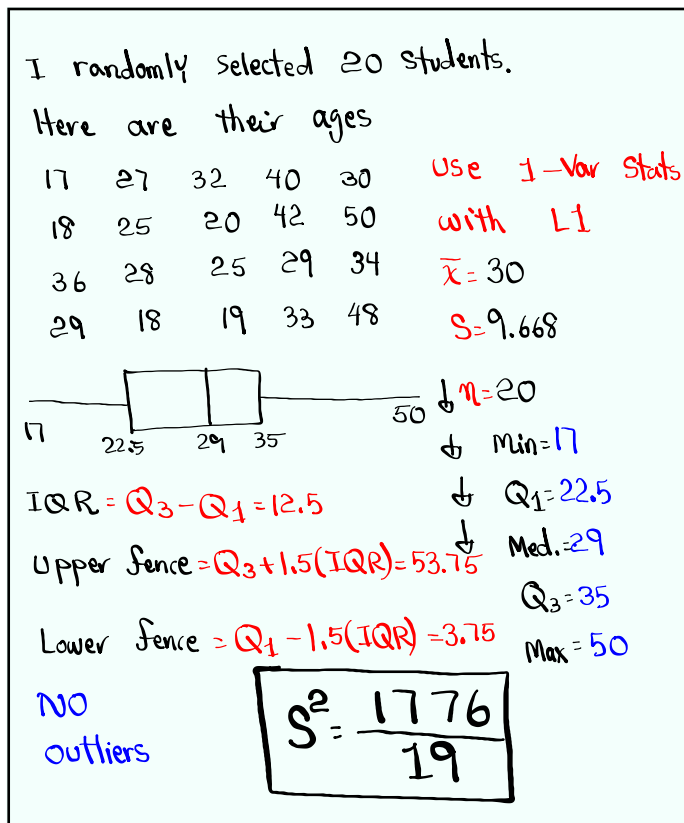 I randomly selected 20 students.
Here are their ages
17 27 32 40 30
18 25 20 42 50
36 28 25 29 34
29 18 19 33 48
Use 1-Var Stats
with L1
x̄ = 30
S = 9.668
↓ n = 20
↓ Min = 17
↓ Q₁ = 22.5
↓ Med. = 29
Q₃ = 35
Max = 50
17 22.5 29 35 50
IQR = Q₃ - Q₁ = 12.5
Upper fence = Q₃ + 1.5(IQR) = 53.75
Lower fence = Q₁ - 1.5(IQR) = 3.75
NO
outliers
S² = 1776/19